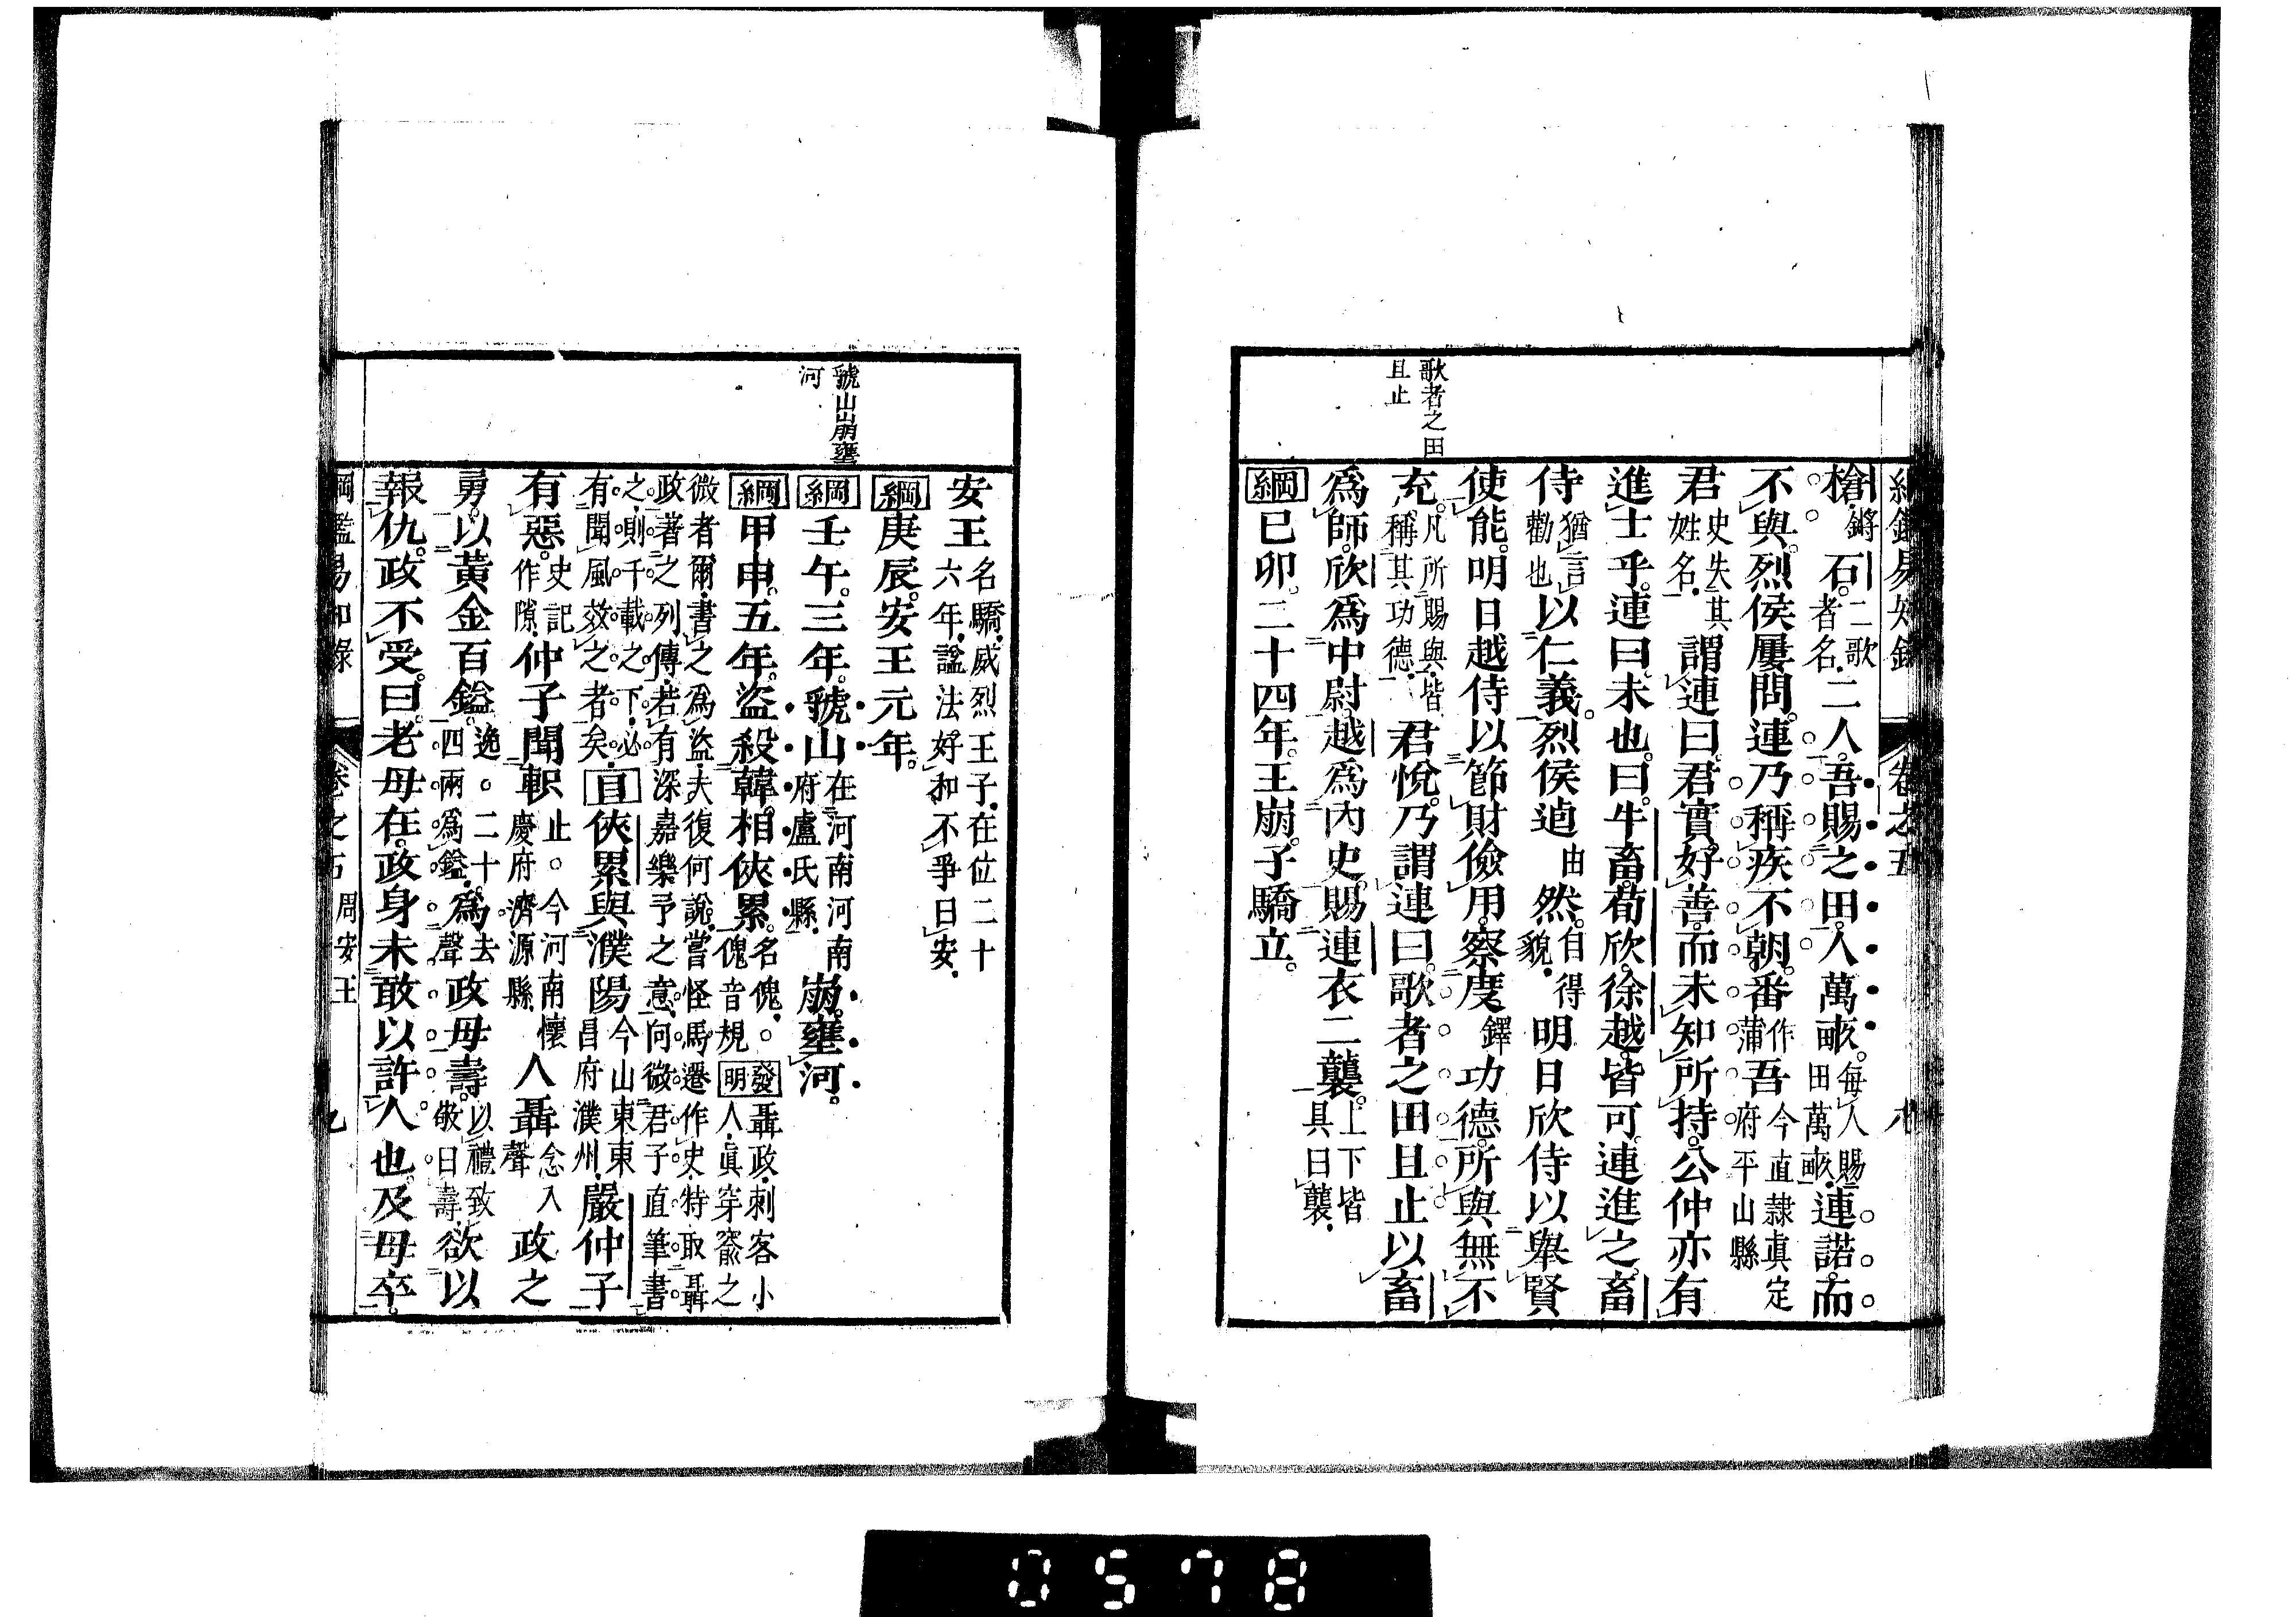 綱鑑易知錄 卷之五 八
歌者之田
且止
槍鏘石二歌者名二人。吾賜之田。人萬畝。每人賜田萬畝連諾。而
不與。烈侯屢問。連乃稱疾不朝。番作蒲吾今直隸真定府平山縣
君史失其姓名謂連曰。君實好善。而未知所持。公仲亦有
進士乎。連曰。未也。曰。牛畜。荀欣。徐越。皆可。連進之。畜
侍猶言勸也以仁義。烈侯逌由然。自得貌明日欣侍以舉賢
使能。明日越侍以節財儉用。察度鐸功德。所與無不
充。凡所賜與皆稱其功德君悅。乃謂連曰。歌者之田且止。以畜
爲師。欣爲中尉。越爲內史。賜連衣二襲。上下皆具曰襲
綱己卯。二十四年。王崩。子驕立。
虢山崩壅
河
安王名驕威烈王子在位二十六年諡法好和不爭曰安
綱庚辰。安王元年。
綱壬午。三年。虢山在河南河南府盧氏縣崩。壅河。
綱甲申。五年。盜殺韓相俠累。名傀。傀音規發明聶政刺客小人眞穿窬之
微者爾書之爲盜夫復何說當怪馬遷作史特取聶政著之列傳若有深嘉樂予之意向微君子直筆書
之則千載之下必有聞風效之者矣目俠累與濮陽今山東東昌府濮州嚴仲子
有惡。史記作隙仲子聞軹止。今河南懷慶府濟源縣人聶念入聲政之
勇。以黃金百鎰。逸。二十四兩爲鎰爲去聲政母壽。以禮致敬曰壽欲以
報仇。政不受。曰。老母在。政身未敢以許人也。及母卒。
綱鑑易知錄 卷之五 周安王 九
0578